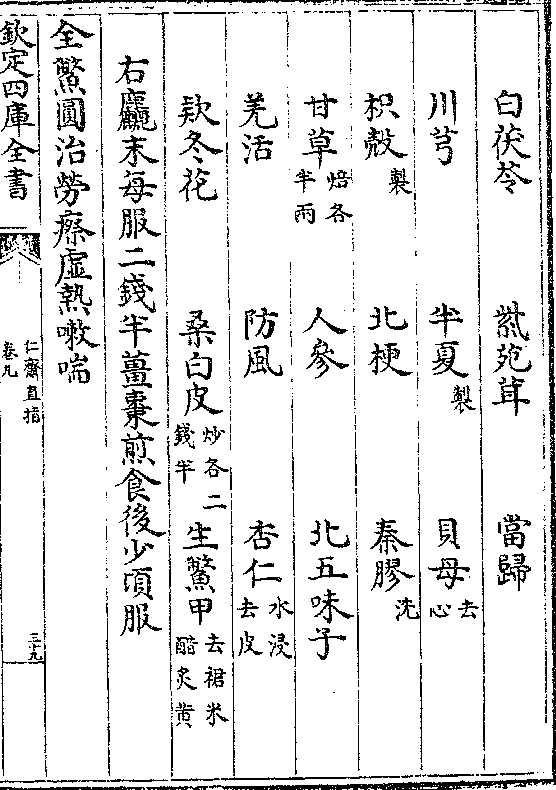 白茯苓　紫菀茸　當歸
川芎　半夏製　貝母去心
枳殻製　北梗　秦膠洗
甘草焙各半兩　人參　北五味子
羌活　防風　杏仁水浸去皮
欵冬花　桑白皮炒各二錢半　生鱉甲去裙米醋炙黄
右麤末每服二錢半薑棗煎食後少頃服
全鱉圓治勞瘵虚熱嗽喘
欽定四庫全書　仁齋直指卷九　三十九